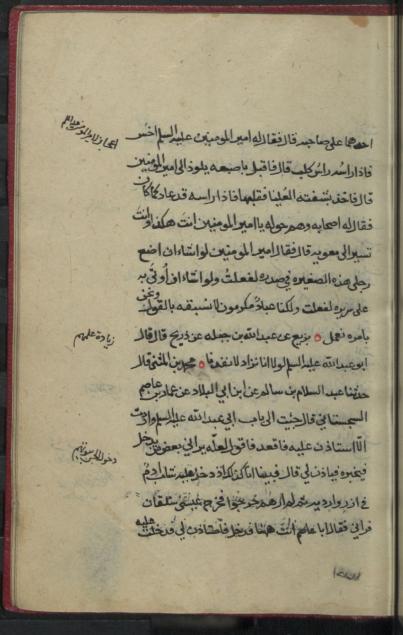 احدهما على صاحبه قال فقال له امير المومنين عليه السلم اخس
فاذا راسه راس كلب قال فاقبل باصبعه يلوذ الى امير المومنين
قال فاخذ بشفته العليا فقلبها فاذا راسه قد عاد كما كان
فقال له اصحابه وهم حوله يا امير المومنين انت هكذا وانت
تسير الى معويه قال فقال امير المومنين لو اشاء ان اضع
رجلى هذه الصغيره فى صدره لفعلت ولو اشاء ان اوتى به
على سريره لفعلت ولكنا عباد مكرمون لا نسبقه بالقول ونحن
بامره نعمل عن عبد الله بن جبله عن ذريح قال قال
زيادة علمهم
ابو عبد الله عليه السلم لولا انا نزاد لانفدنا محمد بن المثنى قال
حدثنا عبد السلام بن سالم عن ابن ابى البلاد عن عمار بن عاصم
السجستانى قال جئت الى باب ابى عبد الله عليه السلم وانا
الا استاذن عليه فاقعد فاقول لعله يرانى بعض من يدخل
فيخبره فياذن لى قال فبينا انا كذلك اذ دخل عليه شباب ادم
فى ازر واردية ثم لم ارهم خرجوا فخرج عيسى شلقان
فرانى فقال ابا عاصم انت ههنا فدخل فاستاذن لى فدخلت عليه